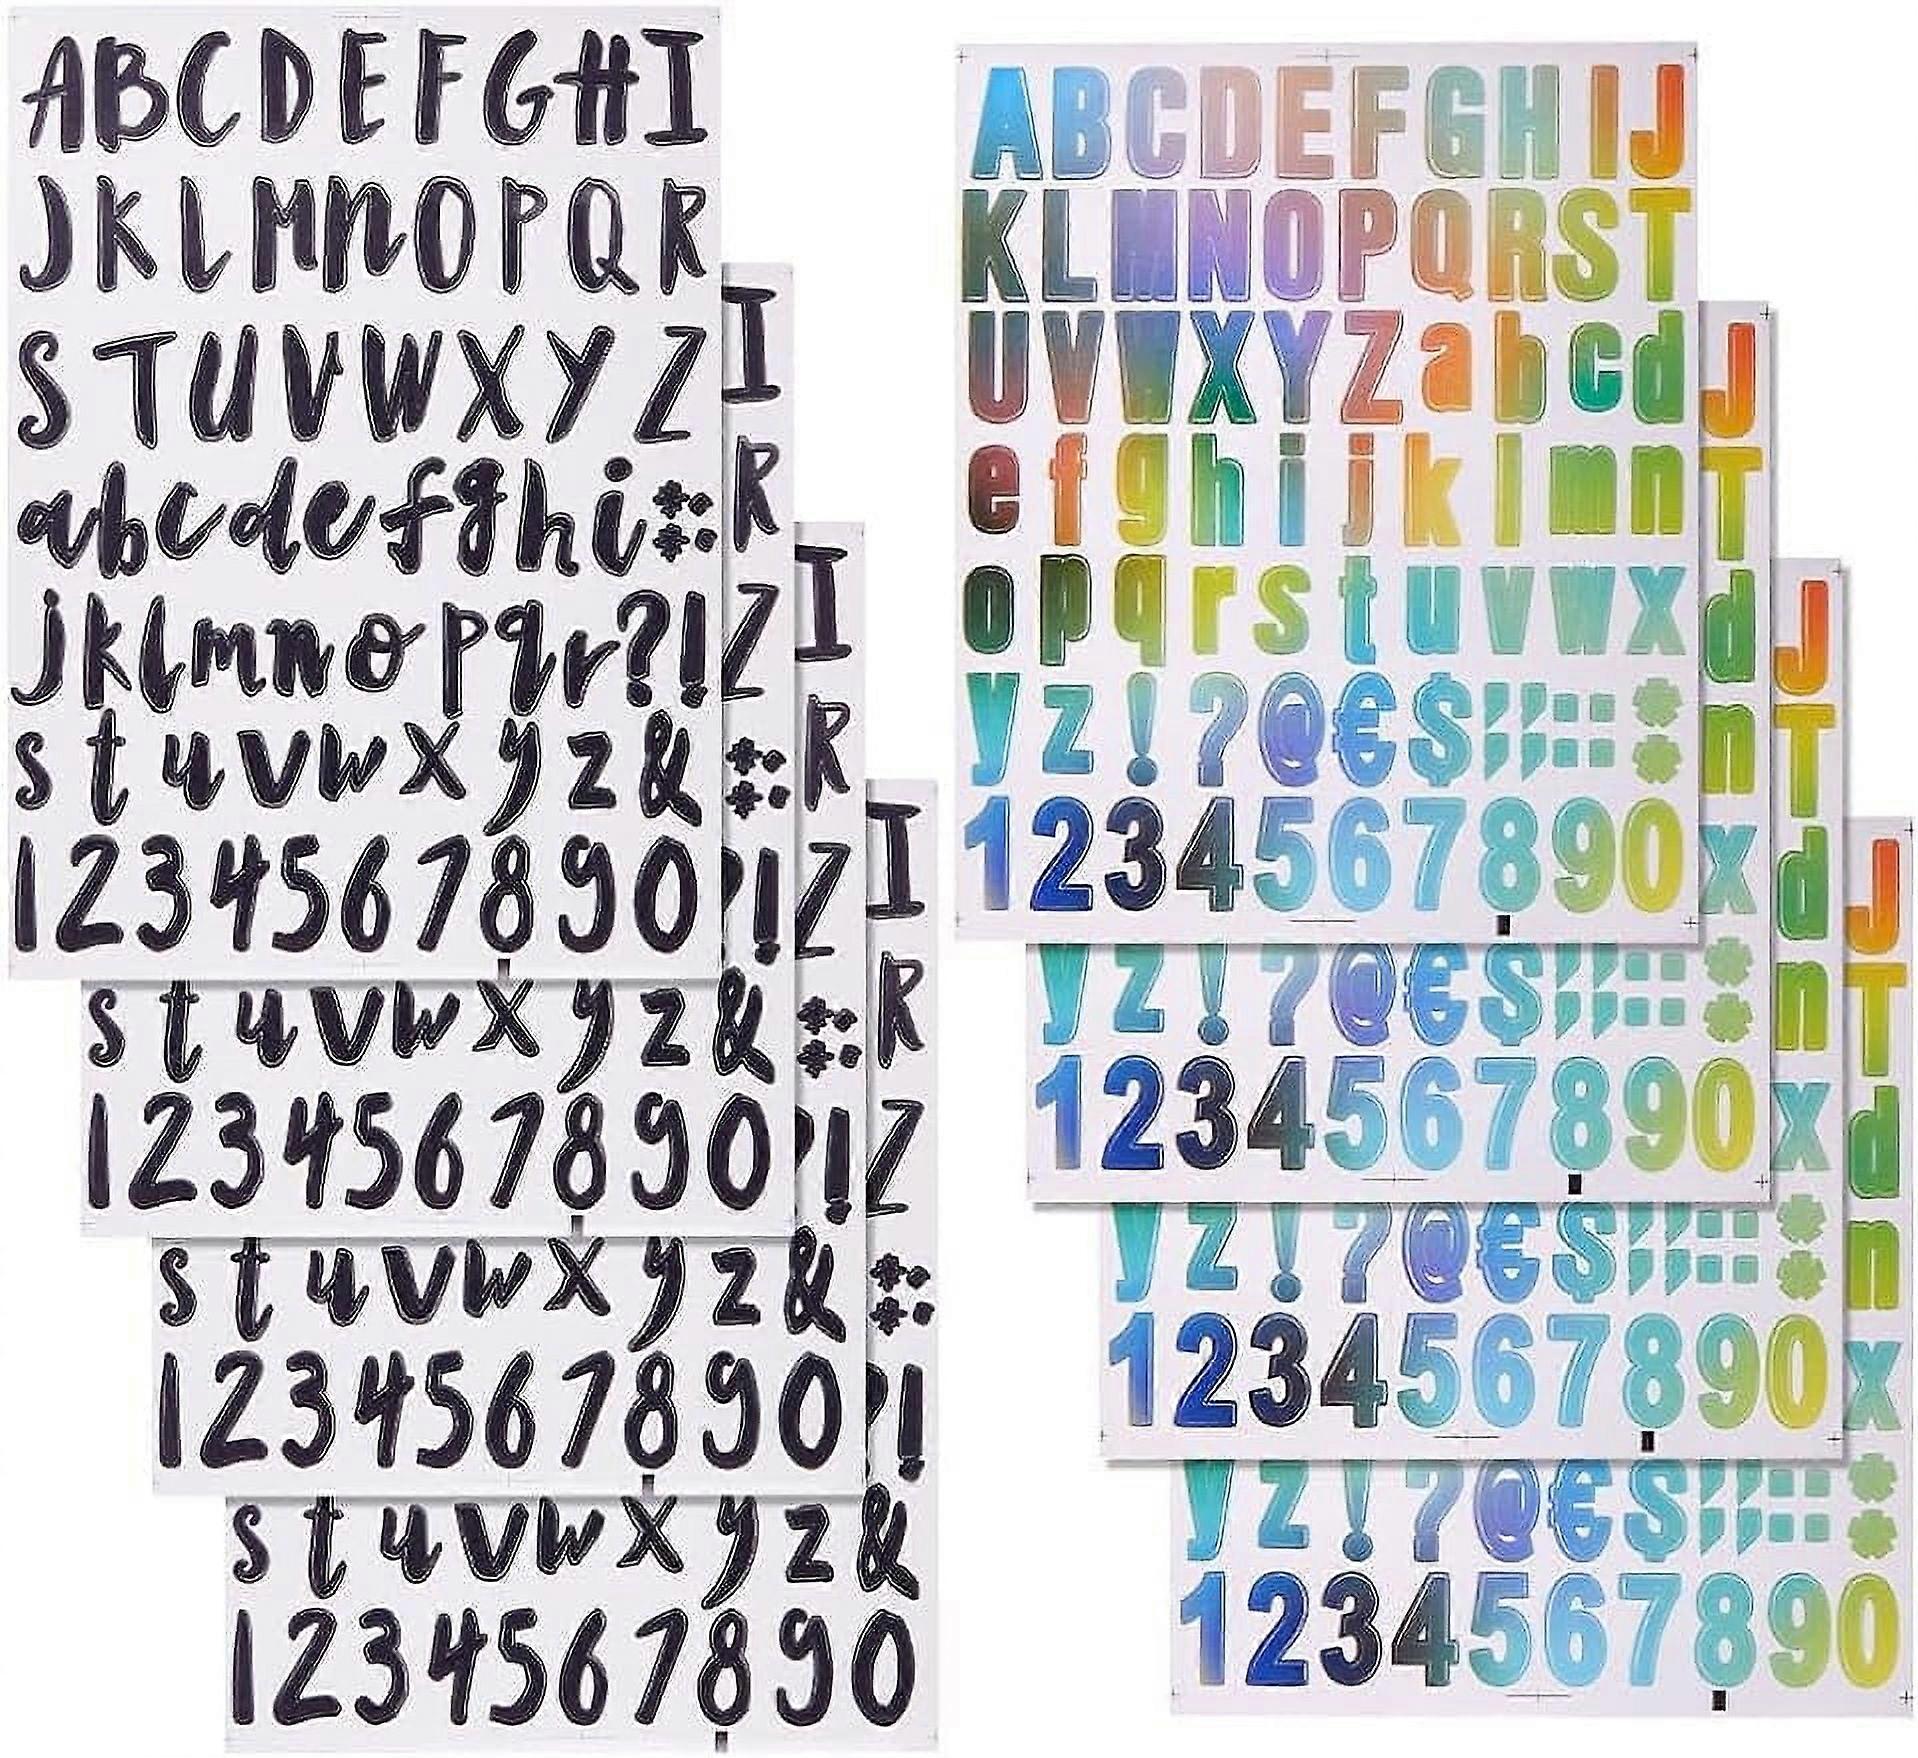 ABCDEFGHI
JKLMNOPQR
STUVWXYZ
abcdefghi
jklmnopqr?!
stuvwxyz&
1234567890
I
R
Z
?!
stuvwxyz&
1234567890
I
R
Z
?!
stuvwxyz&
1234567890
I
R
Z
?!
stuvwxyz&
1234567890
ABCDEFGHIJ
KLMNOPQRST
UVWXYZabcd
efghijklmn
opqrstuvwx
yz!?@€$,,::
1234567890
J
T
d
n
x
yz!?@€$,,::
1234567890
J
T
d
n
x
yz!?@€$,,::
1234567890
J
T
d
n
x
yz!?@€$,,::
1234567890